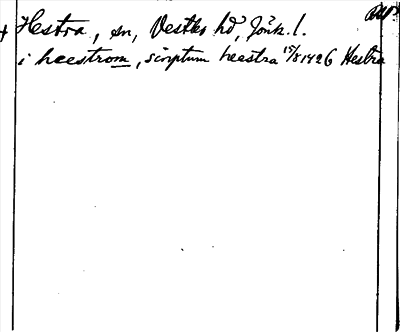 + Hestra, sn, Vestbo hd, Jönk. l.
i heestrom, scriptum heestra 15/8 1426 Hestra